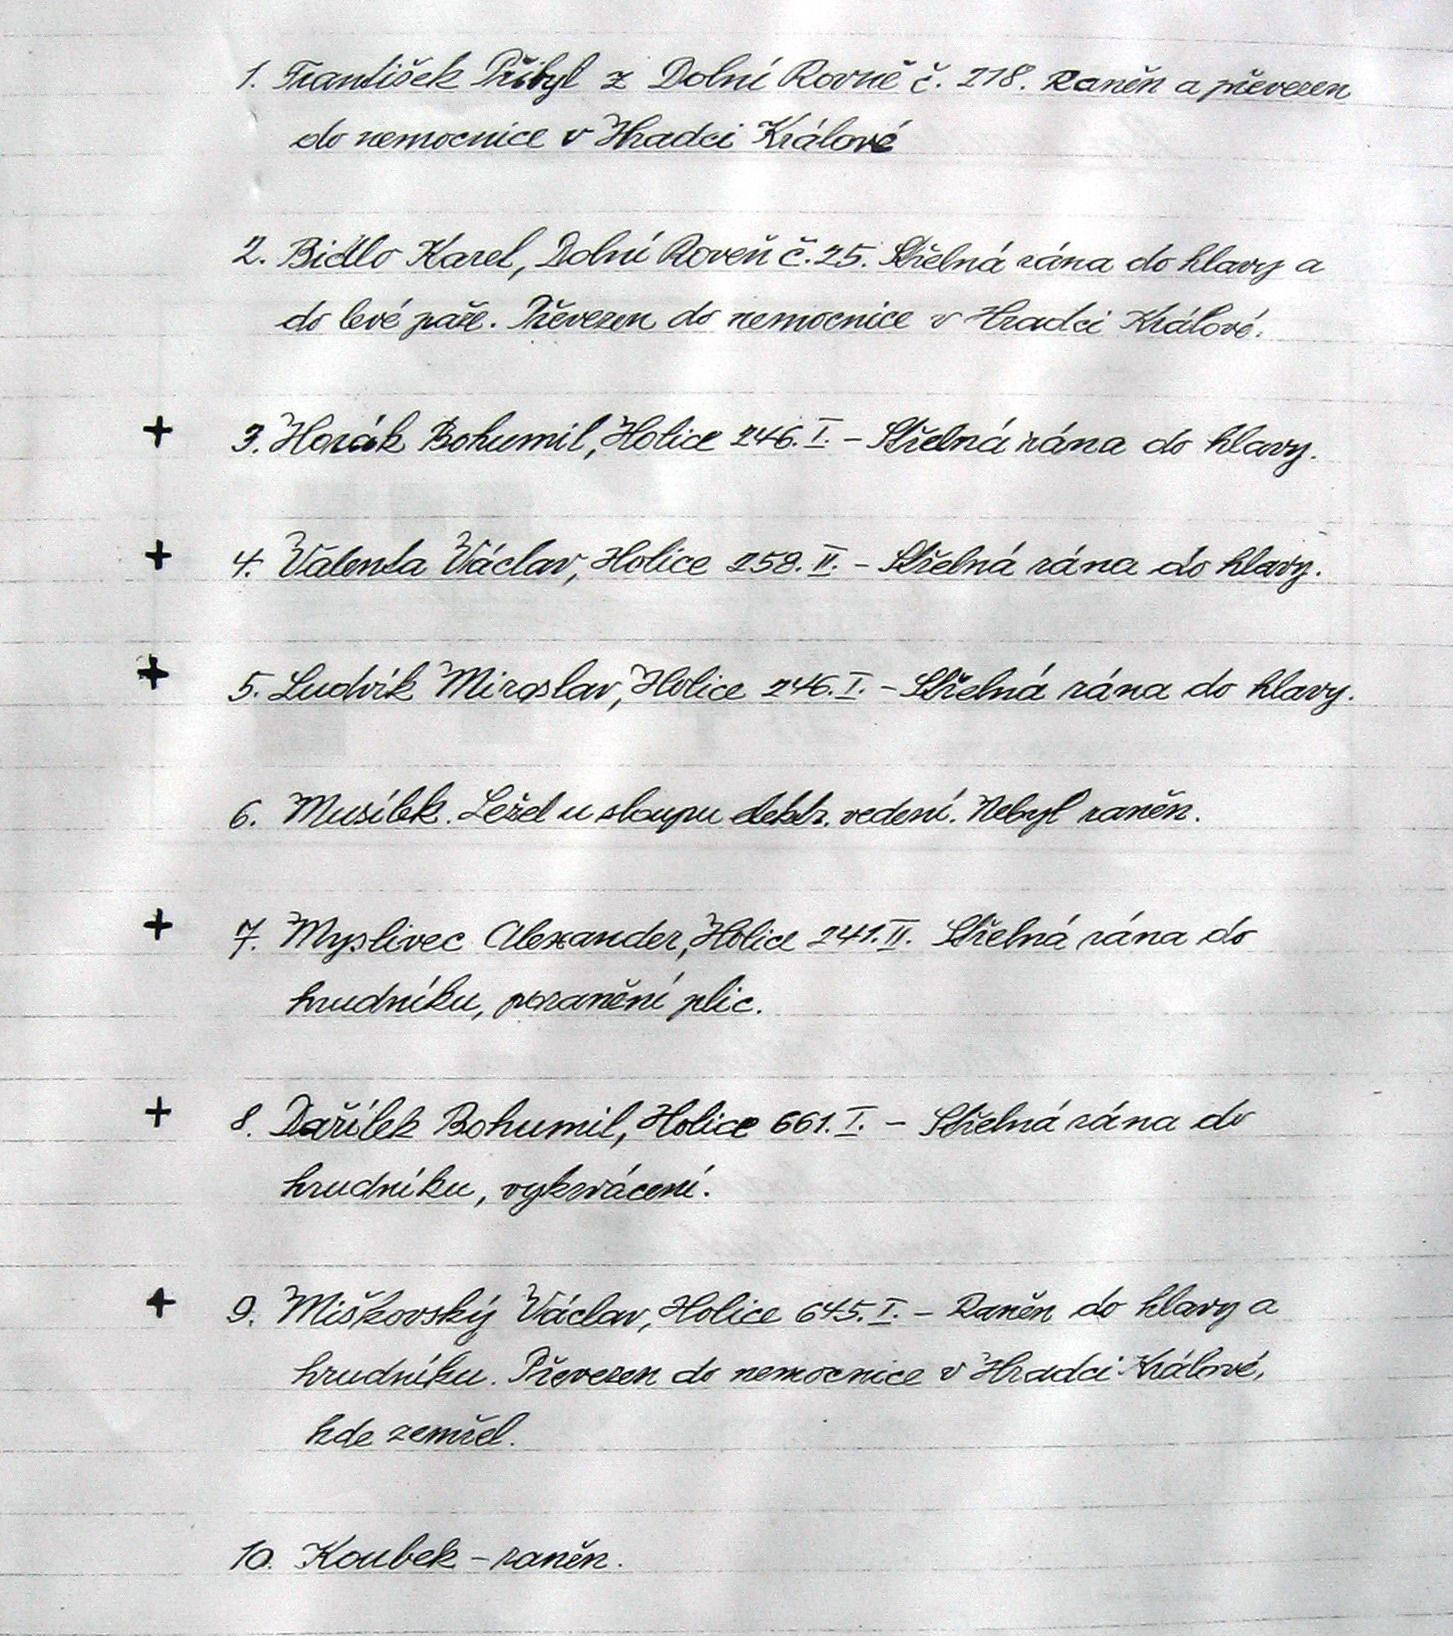 1. František Přibyl z Dolní Rovně č. 218. Raněn a převezen
do nemocnice v Hradci Králové
2. Bidlo Karel, Dolní Roveň č. 25. Střelná rána do hlavy a
do levé paže. Převezen do nemocnice v Hradci Králové.
+ 3. Horák Bohumil, Holice 246. I. – Střelná rána do hlavy.
+ 4. Valenta Václav, Holice 258. II. – Střelná rána do hlavy.
+ 5. Ludvík Miroslav, Holice 246. I. – Střelná rána do hlavy.
6. Musílek. Ležel u sloupu elektr. vedení. Nebyl raněn.
+ 7. Myslivec Alexander, Holice 241. II. Střelná rána do
hrudníku, poranění plic.
+ 8. Dařílek Bohumil, Holice 661. I. – Střelná rána do
hrudníku, vykrvácení.
+ 9. Miškovský Václav, Holice 645. I. – Raněn do hlavy a
hrudníku. Převezen do nemocnice v Hradci Králové,
kde zemřel.
10. Koubek – raněn.